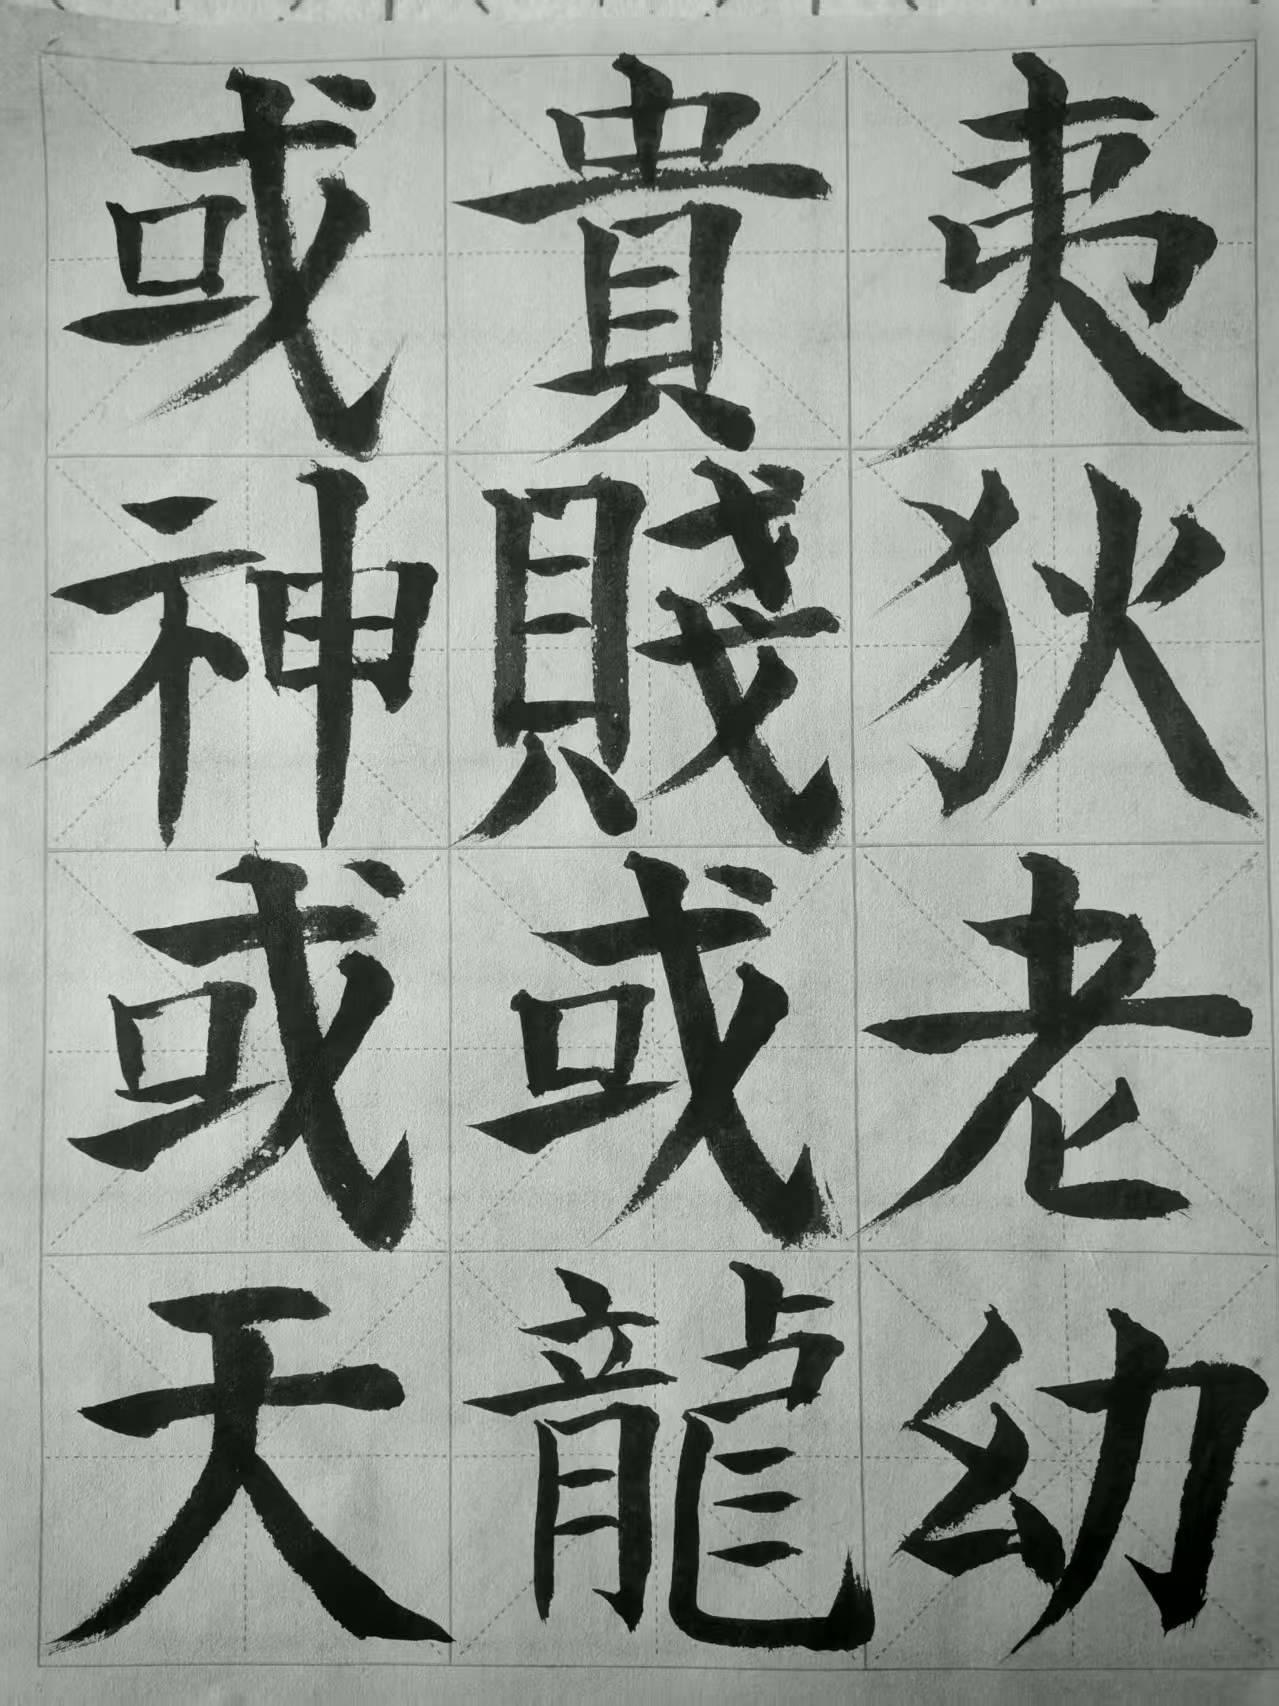 夷狄老幼
貴賤或龍
或神或天